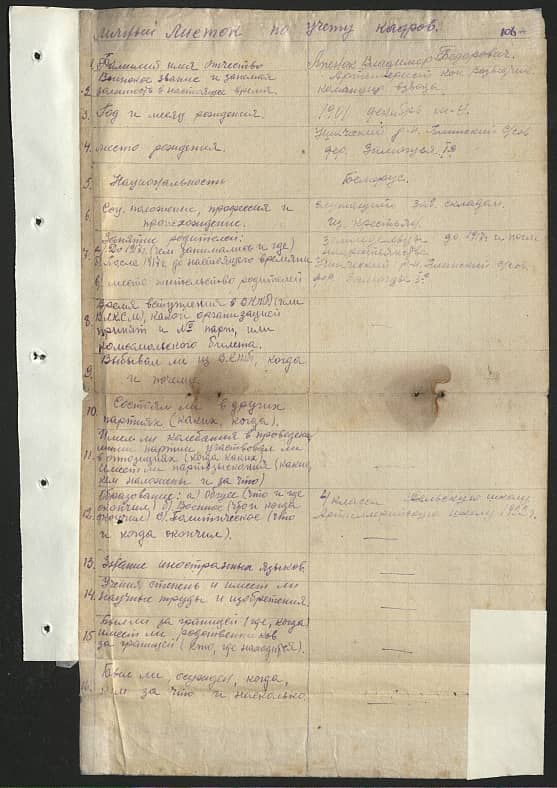 Личный Листок по учету кадров. 106
1. Фамилия имя отчество Владимир Федорович.
Воинское звание и занимая Артиллерист кон. разведчик
2. должность в настоящее время. командир взвода.
3. Год и месяц рождения. 1901 декабрь м-ц.
4. место рождения. р-н.
дер.
5. Национальность Беллорус.
6. Соц. положение, профессия и служащий зав. складом.
происхождение. из крестьян.
Занятие родителей:
7. а) До 1917г. (чем занимались и где) до 1917г и после
б) после 1917г до настоящего времени
в) место жительство родителей
Время вступления в ВКП(б) (или
8. ВЛКСМ), какой организацией
принят и № парт, или
комсомольского билета.
9. Выбывал ли из ВКП(б), когда
и почему
10. Состоял ли в других
партиях (каких, когда).
Имел ли колебания в проведен
линии партии участвовал ли
11. в оппозициях (когда каких)
имеет ли партвзыскания (какие,
кем наложены и за что)
Образование: а) Общее (что и где 4 класса сельскую школу
окончил) б) Военное (что и когда Артиллерийскую школу 1922г.
12. окончил) в) Политическое (что
и когда окончил).
13. Знание иностранных языков.
Ученая степень и имеет ли
14. научные труды и изобретения.
Был ли за границей (где, когда)
15. имеет ли родственников
за границей (кто, где находятся).
16. Был ли осужден, когда,
за что и насколько.